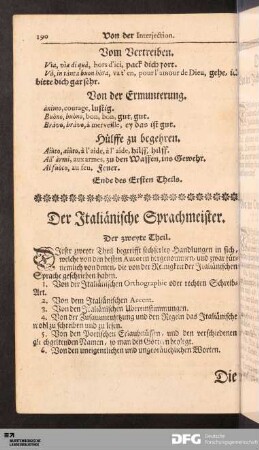 190 Von der Interjection.
Vom Vertreiben.
Via, via di quà, hors d'ici, pack dich fort.
Và, in tanta buon hora, va t'en, pour l'amour de Dieu, gehe, ich
bitte dich gar sehr.
Von der Ermunterung.
ánimo, courage, lustig.
Buóno, buóno, bon, bon, gut, gut.
Brávo, brávo, à merveille, ey das ist gut.
Hülffe zu begehren.
Aiúto, aiúto, à l'aide, à l'aide, hilff, hilff.
All' ármi, aux armes, zu den Waffen, ins Gewehr.
Al fuóco, au feu, Feuer.
Ende des Ersten Theils.
Der Italiänische Sprachmeister.
Der zweyte Theil.
Dieser zweyte Theil begreifft sechserley Handlungen in sich,
welche von den besten Autoren hergenommen, und zwar für-
nemlich von denen, die von der Reinigkeit der Italiänischen
Sprache geschrieben haben.
1. Von der Italiänischen Orthographie oder rechten Schreib-
Art.
2. Von dem Italiänischen Accent.
3. Von den Italiänischen Ubereinstimmungen.
4. Von der Zusammensetzung und den Regeln das Italiänische
wohl zu schreiben und zu lesen.
5. Von den Poetischen und den verschiedenen
Namen, so man den Göttern beylegt.
6. Von den uneigentlichen und ungebräuchlichen Worten.
Die
DFG Deutsche
Forschungsgemeinschaft